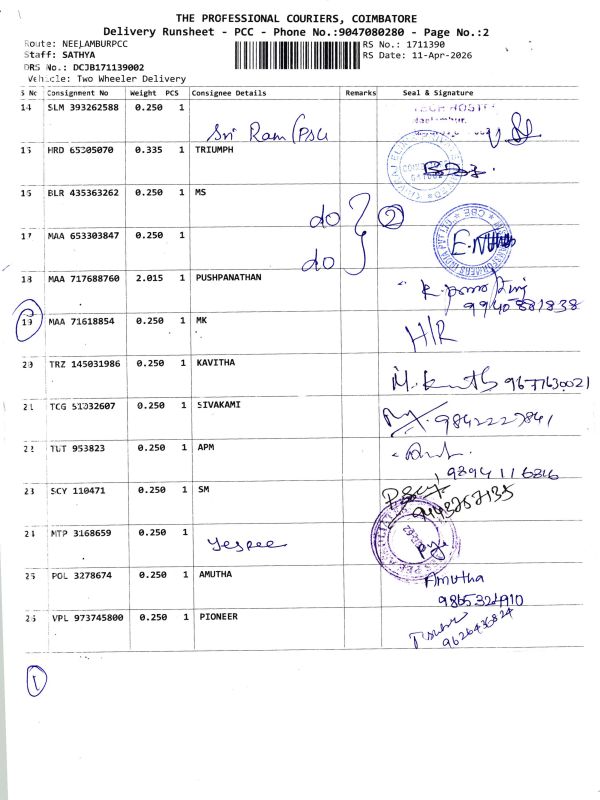 THE PROFESSIONAL COURIERS, COIMBATORE
Delivery Runsheet - PCC - Phone No.:9047080280 - Page No.:2
Route: NEELAMBURPCC RS No.: 1711390
Staff: SATHYA RS Date: 11-Apr-2026
DRS No.: DCJB171139002
Vehicle: Two Wheeler Delivery
S No Consignment No Weight PCS Consignee Details Remarks Seal & Signature
14 SLM 393262588 0.250 1
Sri Ram
15 HRD 65305070 0.335 1 TRIUMPH
16 BLR 435363262 0.250 1 MS
do 2
17 MAA 653303847 0.250 1
do
18 MAA 717688760 2.015 1 PUSHPANATHAN
9940881838
19 MAA 71618854 0.250 1 MK
H/R
20 TRZ 145031986 0.250 1 KAVITHA
9677630021
21 TCG 51032607 0.250 1 SIVAKAMI
9842227841
22 TUT 953823 0.250 1 APM
9894116816
23 SCY 110471 0.250 1 SM
9443767135
24 MTP 3168659 0.250 1
25 POL 3278674 0.250 1 AMUTHA
Amutha
9865324910
26 VPL 973745800 0.250 1 PIONEER
9626436824
1